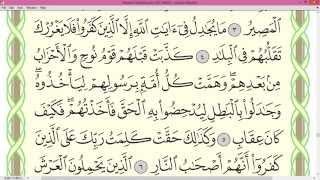 الْمَصِيرُ ٣ مَا يُجَادِلُ فِي آيَاتِ اللَّهِ إِلَّا الَّذِينَ كَفَرُوا فَلَا يَغْرُرْكَ
تَقَلُّبُهُمْ فِي الْبِلَادِ ٤ كَذَّبَتْ قَبْلَهُمْ قَوْمُ نُوحٍ وَالْأَحْزَابُ
مِنْ بَعْدِهِمْ وَهَمَّتْ كُلُّ أُمَّةٍ بِرَسُولِهِمْ لِيَأْخُذُوهُ
وَجَادَلُوا بِالْبَاطِلِ لِيُدْحِضُوا بِهِ الْحَقَّ فَأَخَذْتُهُمْ فَكَيْفَ
كَانَ عِقَابِ ٥ وَكَذَلِكَ حَقَّتْ كَلِمَتُ رَبِّكَ عَلَى الَّذِينَ
كَفَرُوا أَنَّهُمْ أَصْحَابُ النَّارِ ٦ الَّذِينَ يَحْمِلُونَ الْعَرْشَ